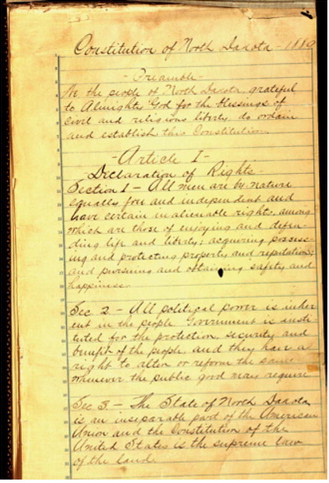 Constitution of North Dakota - 1889
- Preamble -
We the people of North Dakota grateful
to Almighty God for the blessings of
civil and religious liberty, do ordain
and establish this Constitution
- Article I -
Declaration of Rights.
Section 1 - All men are by nature
equally free and independent and
have certain inalienable rights, among
which are those of enjoying and defen
ding life and liberty; acquiring possess-
ing and protecting property and reputation;
and pursuing and obtaining safety and
happiness.
Sec 2 - All political power is inher
ent in the people Government is insti
tuted for the protection, security and
benefit of the people, and they have a
right to alter or reform the same
whenever the public good may require
Sec 3 - The State of North Dakota
is an inseparable part of the American
Union and the Constitution of the
United States is the supreme law
of the land.